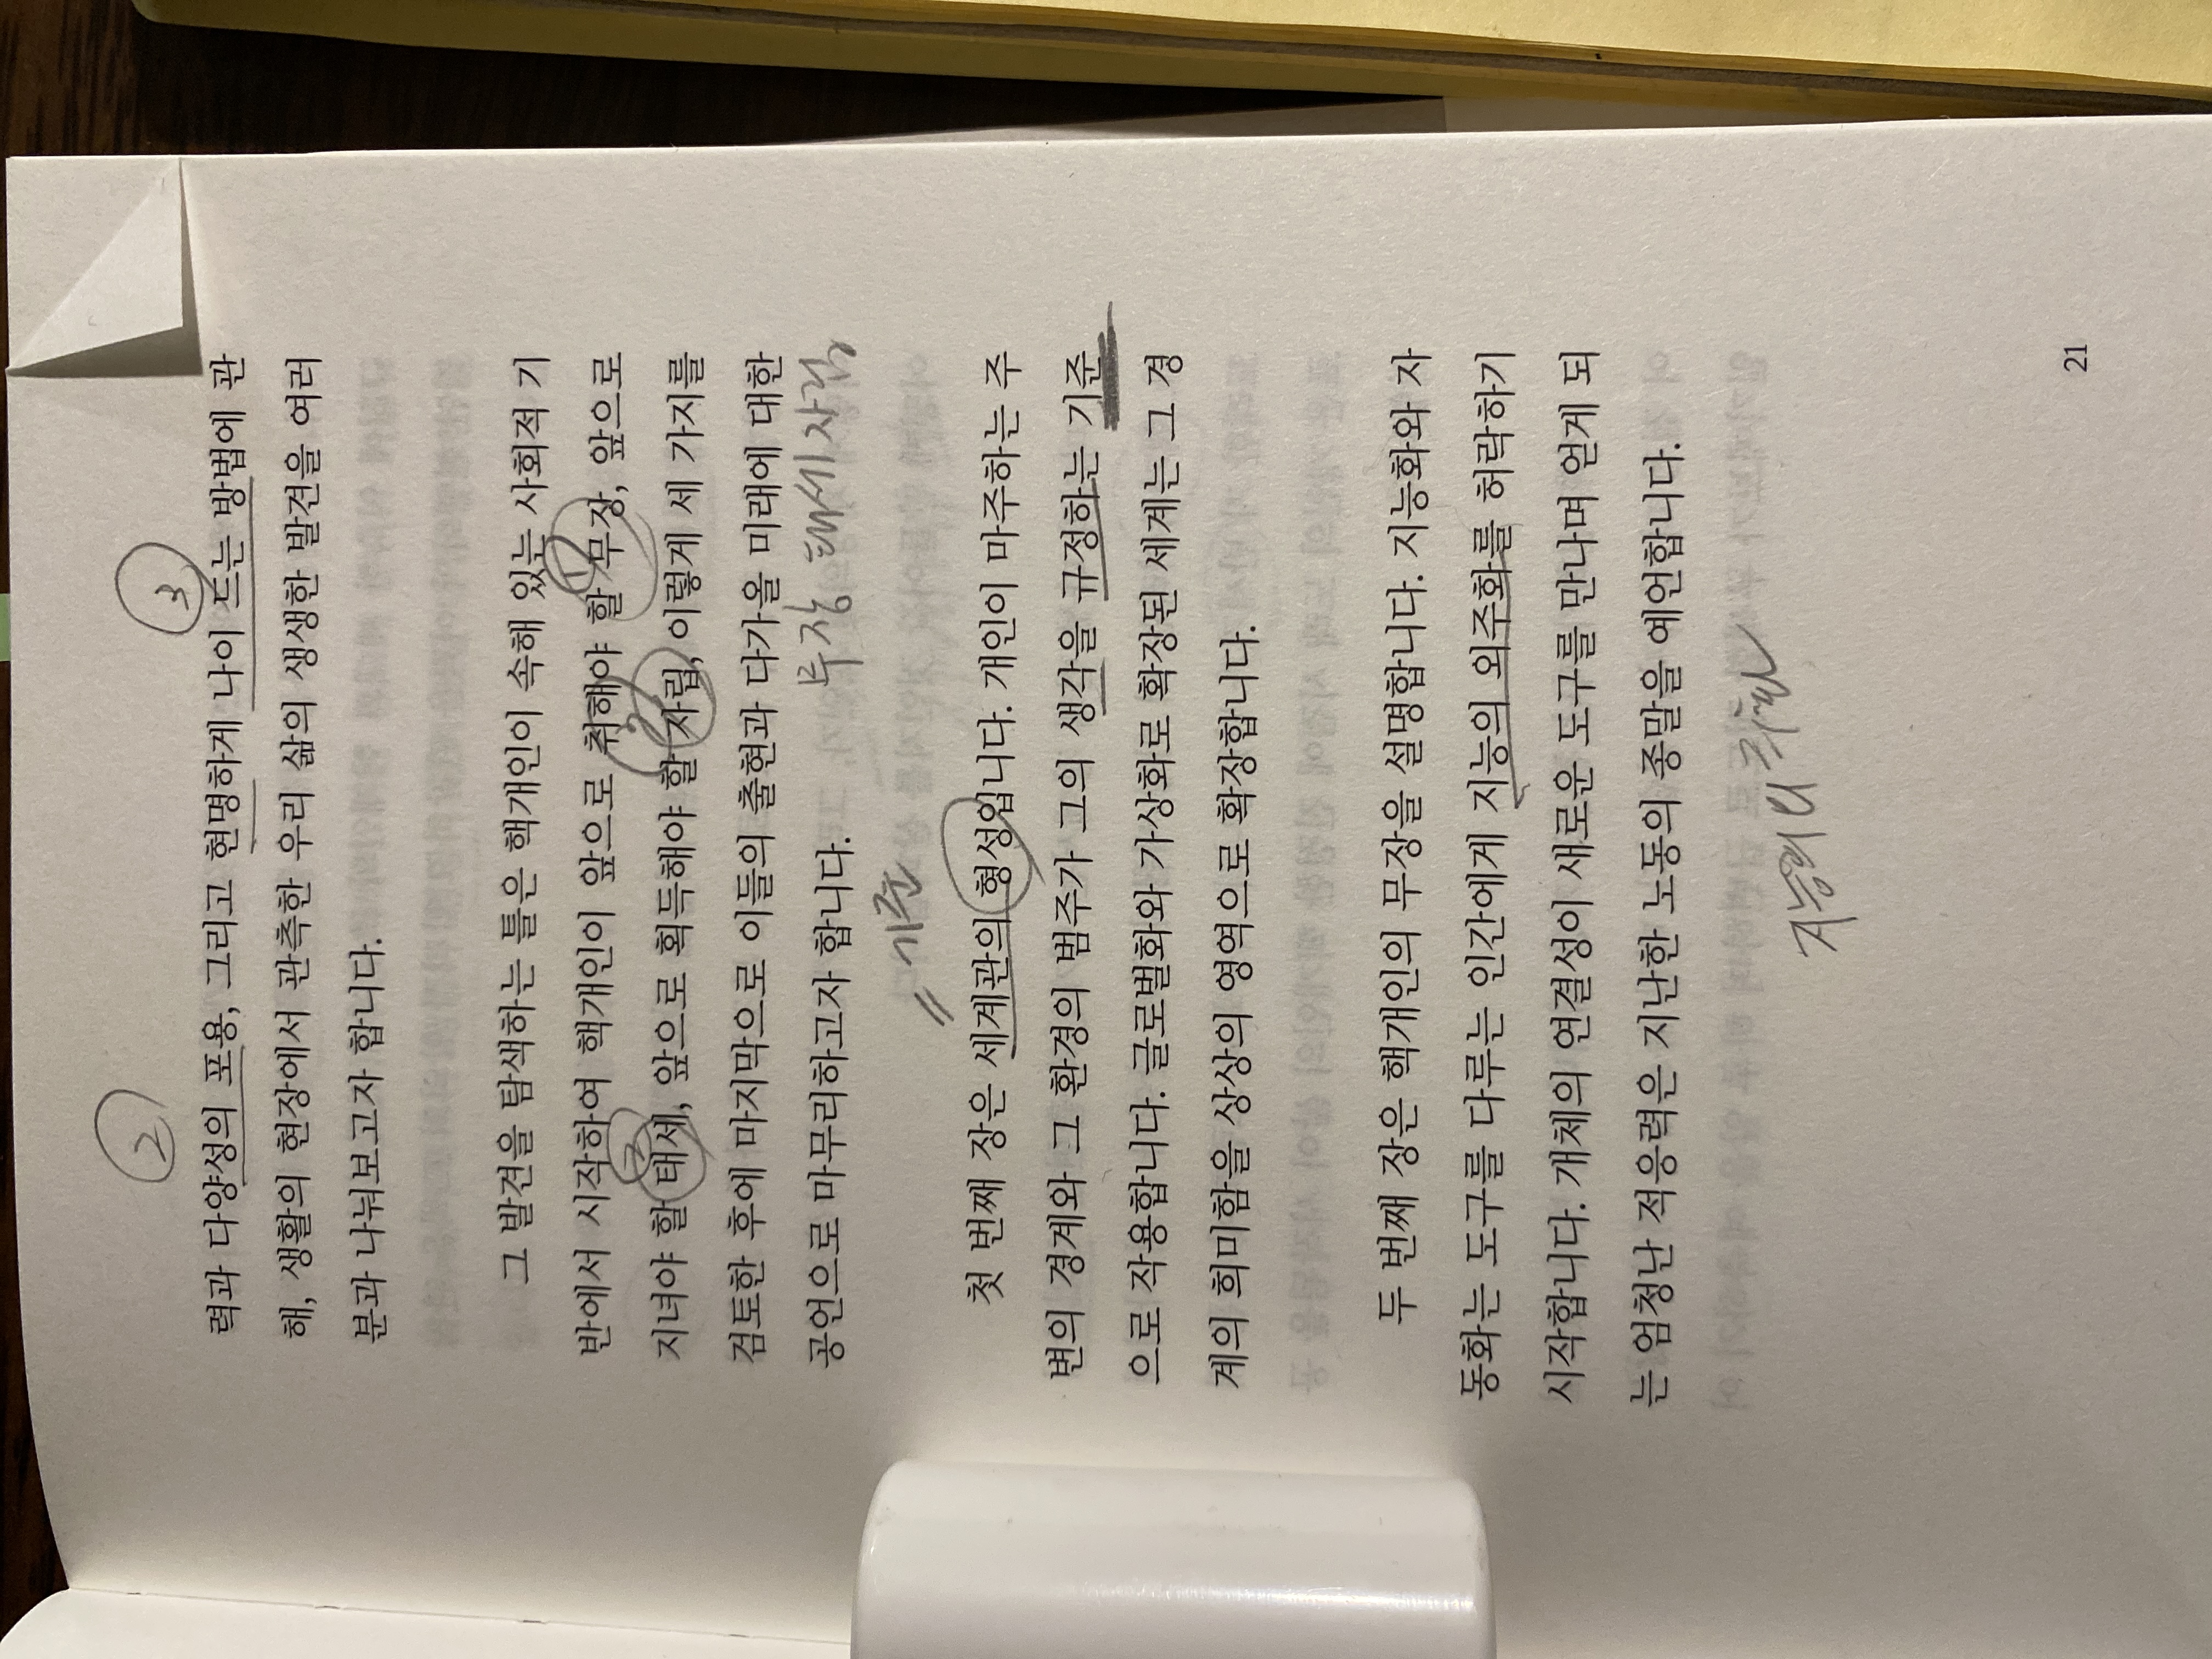 ② ③
력과 다양성의 포용, 그리고 현명하게 나이 드는 방법에 관
해, 생활의 현장에서 관측한 우리 삶의 생생한 발견을 여러
분과 나눠보고자 합니다.
그 발견을 탐색하는 틀은 핵개인이 속해 있는 사회적 기
반에서 시작하여 핵개인이 앞으로 취해야 할 무장, 앞으로
지녀야 할 태세, 앞으로 획득해야 할 자립, 이렇게 세 가지를
검토한 후에 마지막으로 이들의 출현과 다가올 미래에 대한
공언으로 마무리하고자 합니다.
무장 태세 자립
= 기준
첫 번째 장은 세계관의 형성입니다. 개인이 마주하는 주
변의 경계와 그 환경의 범주가 그의 생각을 규정하는 기준
으로 작용합니다. 글로벌화와 가상화로 확장된 세계는 그 경
계의 희미함을 상상의 영역으로 확장합니다.
두 번째 장은 핵개인의 무장을 설명합니다. 지능화와 자
동화는 도구를 다루는 인간에게 지능의 외주화를 허락하기
시작합니다. 개체의 연결성이 새로운 도구를 만나며 얻게 되
는 엄청난 적응력은 지난한 노동의 종말을 예언합니다.
지능의
21